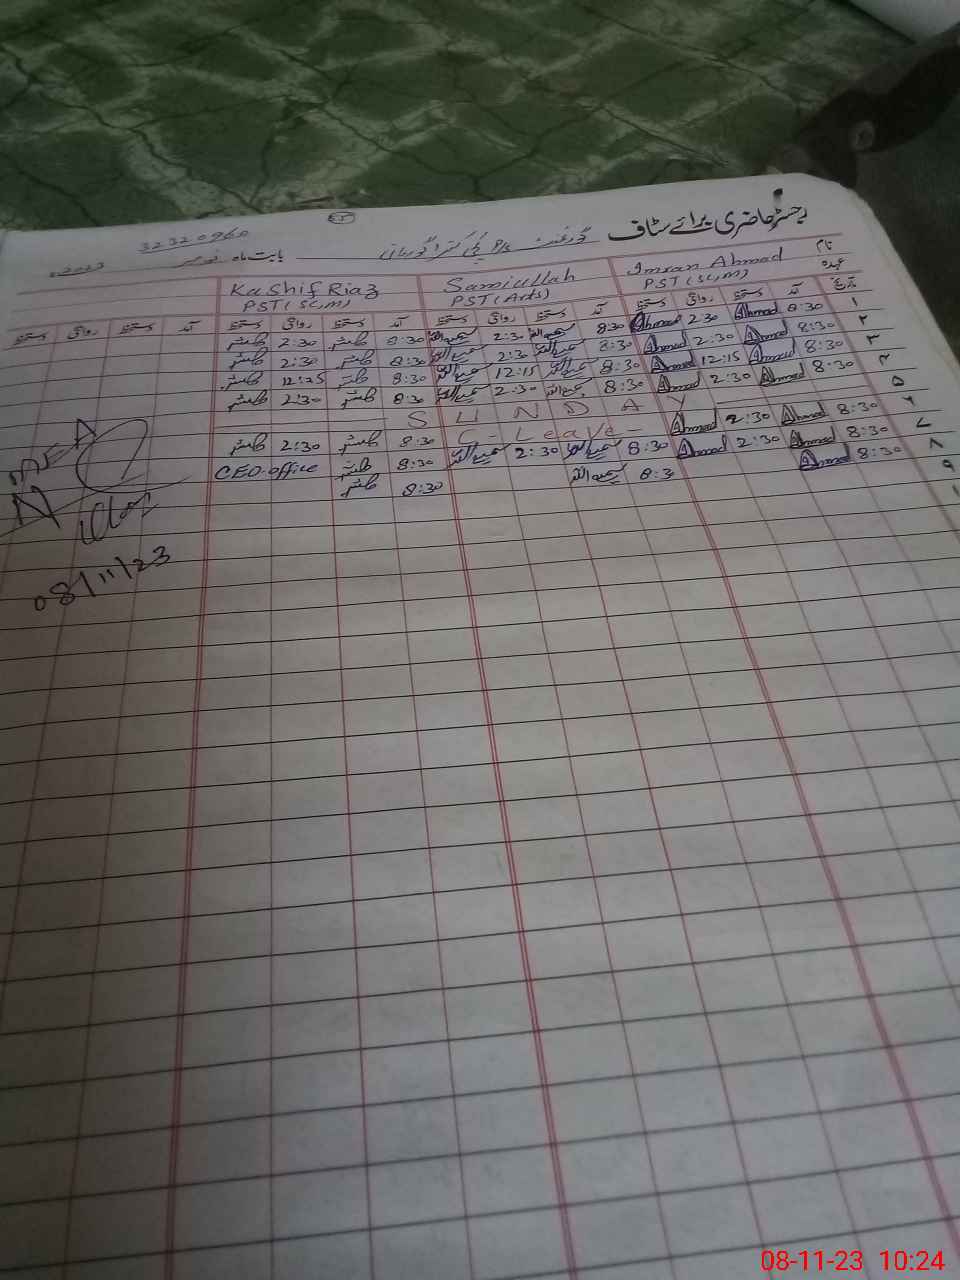 رجسٹر حاضری برائے سٹاف
گورنمنٹ P/S
بابت ماہ نومبر 2023ء
32320960
نام Imran Ahmad Samiullah Kashif Riaz
عہدہ PST (Sc/M) PST (Arts) PST (Sc/M)
تاریخ آمد دستخط روانگی دستخط آمد دستخط روانگی دستخط آمد دستخط روانگی دستخط آمد دستخط روانگی دستخط
۱ 8:30 Ahmad 2:30 Ahmad 8:30 سمیع اللہ 2:30 سمیع اللہ 8:30 کاشف 2:30 کاشف
۲ 8:30 Ahmad 2:30 Ahmad 8:30 سمیع اللہ 2:30 سمیع اللہ 8:30 کاشف 2:30 کاشف
۳ 8:30 Ahmad 12:15 Ahmad 8:30 سمیع اللہ 12:15 سمیع اللہ 8:30 کاشف 12:15 کاشف
۴ 8:30 Ahmad 2:30 Ahmad 8:30 سمیع اللہ 2:30 سمیع اللہ 8:30 کاشف 2:30 کاشف
۵ SUNDAY
۶ 8:30 Ahmad 2:30 Ahmad C-Leave- 8:30 کاشف 2:30 کاشف
۷ 8:30 Ahmad 2:30 Ahmad 8:30 سمیع اللہ 2:30 سمیع اللہ 8:30 کاشف CEO office
۸ 8:30 Ahmad 8:3 سمیع اللہ 8:30 کاشف
۹
MEA
08/11/23
08-11-23 10:24